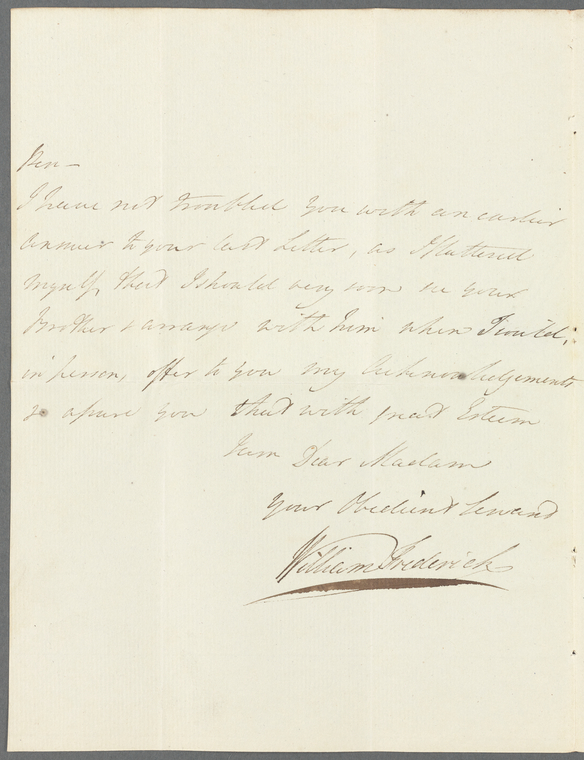 Pen—
I have not troubled You with an earlier
Answer to your last Letter, as I flattered
Myself, that I should very soon see your
Brother & arrange with him when I could,
in person, offer to You my Acknowledgements
assure you that with great Esteem
I am Dear Madam
your Obedient Servant
William Frederick